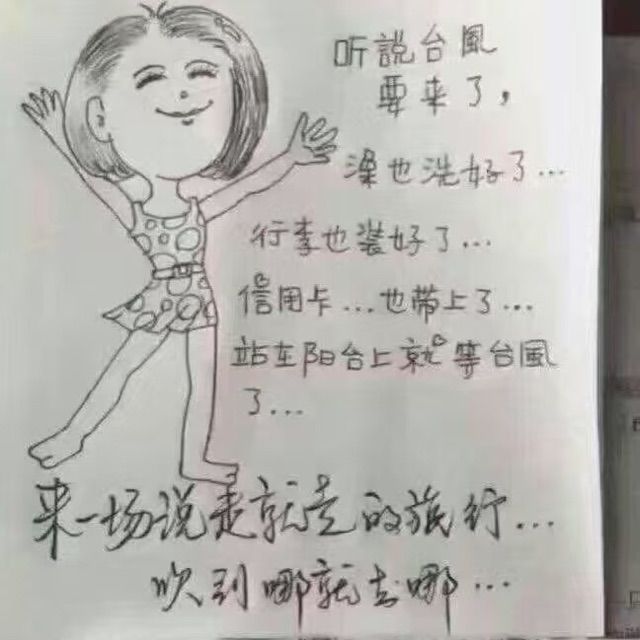 听說台風
要来了，
澡也洗好了…
行李也装好了…
信用卡…也带上了…
站在阳台上就等台風
了…
来一场说走就走的旅行…
吹到哪就去哪…